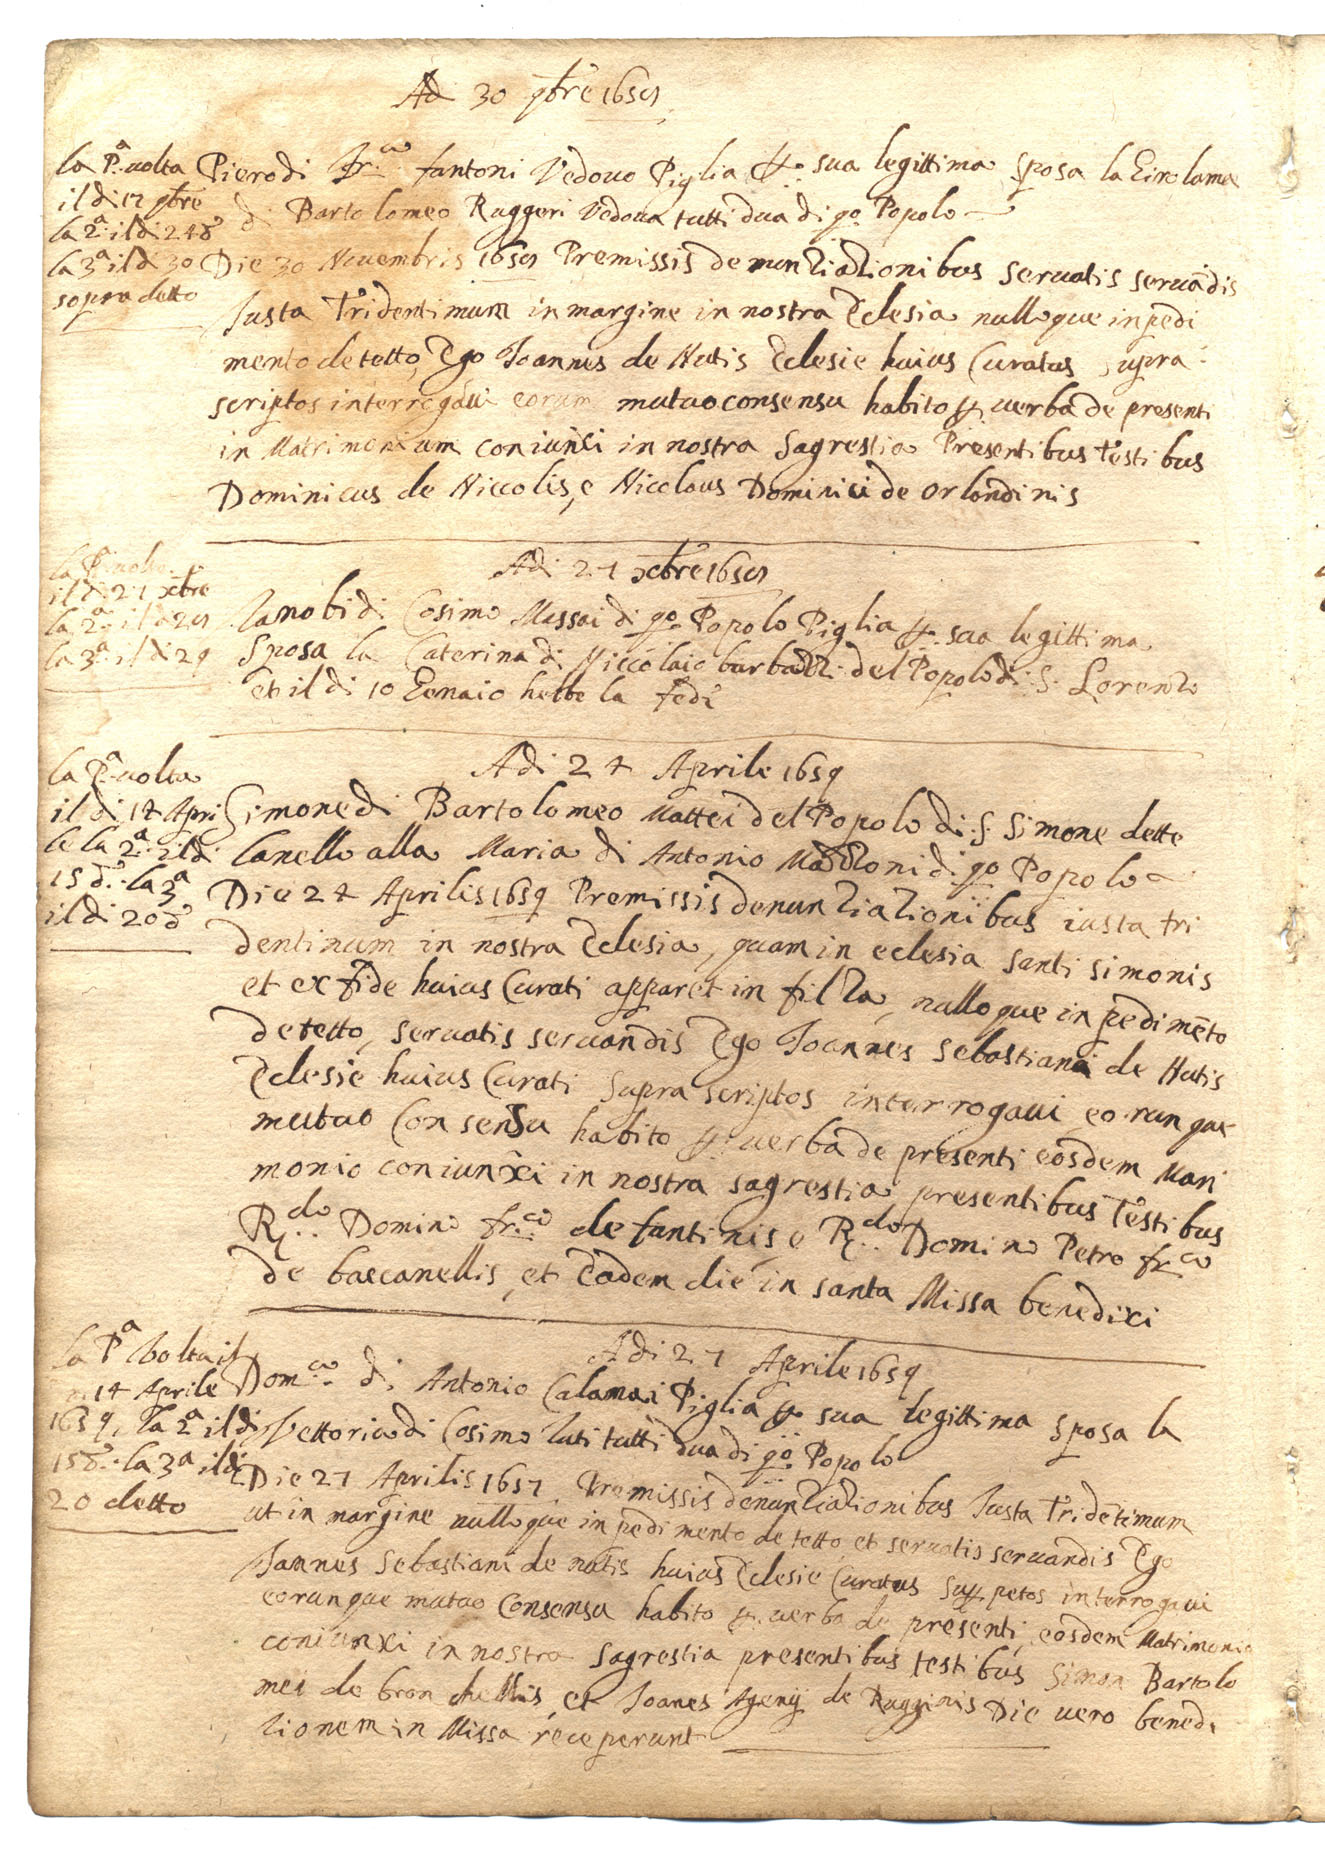 Ad 30 9bre 1658
la Pa. uolta
il di 17 9bre
la 2a. il di 24 do
la 3a il di 30
sopra detto
Piero di Fr.co fantoni Vedouo Piglia p. sua legittima sposa la Girolama
di Bartolomeo Ruggeri Vedoua tutti dua di qo. Popolo
Die 30 Nouembris 1658 Premissis denuntiationibus seruatis seruādis
Iusta Tridentinum in margine in nostra Eclesia nulloque inpedi
mento detetto, Ego Ioannes de Natis Eclesie huius Curatus supra
scriptos interrogaui eorum mutuo consensu habito p. uerba de presenti
in Matrimonium coniunxi in nostra sagrestia Presentibus testibus
Dominicus de Niccolis, e Nicolaus Dominici de orlandinis
Adi 27 xbre 1658
la Pa. uolta
il di 27 xbre
la 2a. il di 28
la 3a. il di 29
Zanobi di Cosimo Massai di qo. Popolo Piglia p. sua legittima
sposa la Caterina di Niccolaio barbazzi del Popolo di S. Lorenzo
et il di 10 Genaio hebbe la fede
Adi 24 Aprile 1659
la Pa. uolta
il di 14 Apri
le la 2a. il di
15 do. la 3a
il di 20 do
Simone di Bartolomeo Mattei del Popolo di S. Simone dette
lanello alla Maria di Antonio Mazzoni di qo Popolo
Die 24 Aprilis 1659 Premissis denuntiationibus iusta tri
dentinum in nostra Eclesia, quam in eclesia santi simonis
et ex fide huius Curati apparet in filza, nulloque inpedimēto
detetto, seruatis seruandis Ego Ioannes sebastiani de Natis
Eclesie huius Curati supra scriptos interrogaui, eorunque
mutuo Consensu habito p. uerba de presenti eosdem Matri
monio coniunxi in nostra sagrestia presentibus testibus
R.do Domino fr.co de fantinis, e R.do Domino Petro fr.co
de bascanellis, et Eadem die in santa Missa benedixi
Adi 27 Aprile 1659
la Pa Uolta il
di 14 Aprile
1659, la 2a il di
15 do. la 3a il di
20 detto
Dom.co di Antonio Calamai Piglia p. sua legittima sposa la
Vettoria di Cosimo luti tutti dua di qo. Popolo
Die 27 Aprilis 1657 Premissis denuntiationibus Iusta Tridētinum
ut in margine nulloque inpedimento detetto, et seruatis seruandis Ego
Ioannes Sebastiani de natis huius Eclesie Curatus sup. petos interrogaui
eorunque mutuo Consensu habito p. uerba de presenti, eosdem Matrimonio
coniunxi in nostra sagrestia presentibus testibus Simon Bartolo
mei de bronchellis, et Ioanes Agenij de Rugginis Die uero benedi
tionem in Missa receperunt